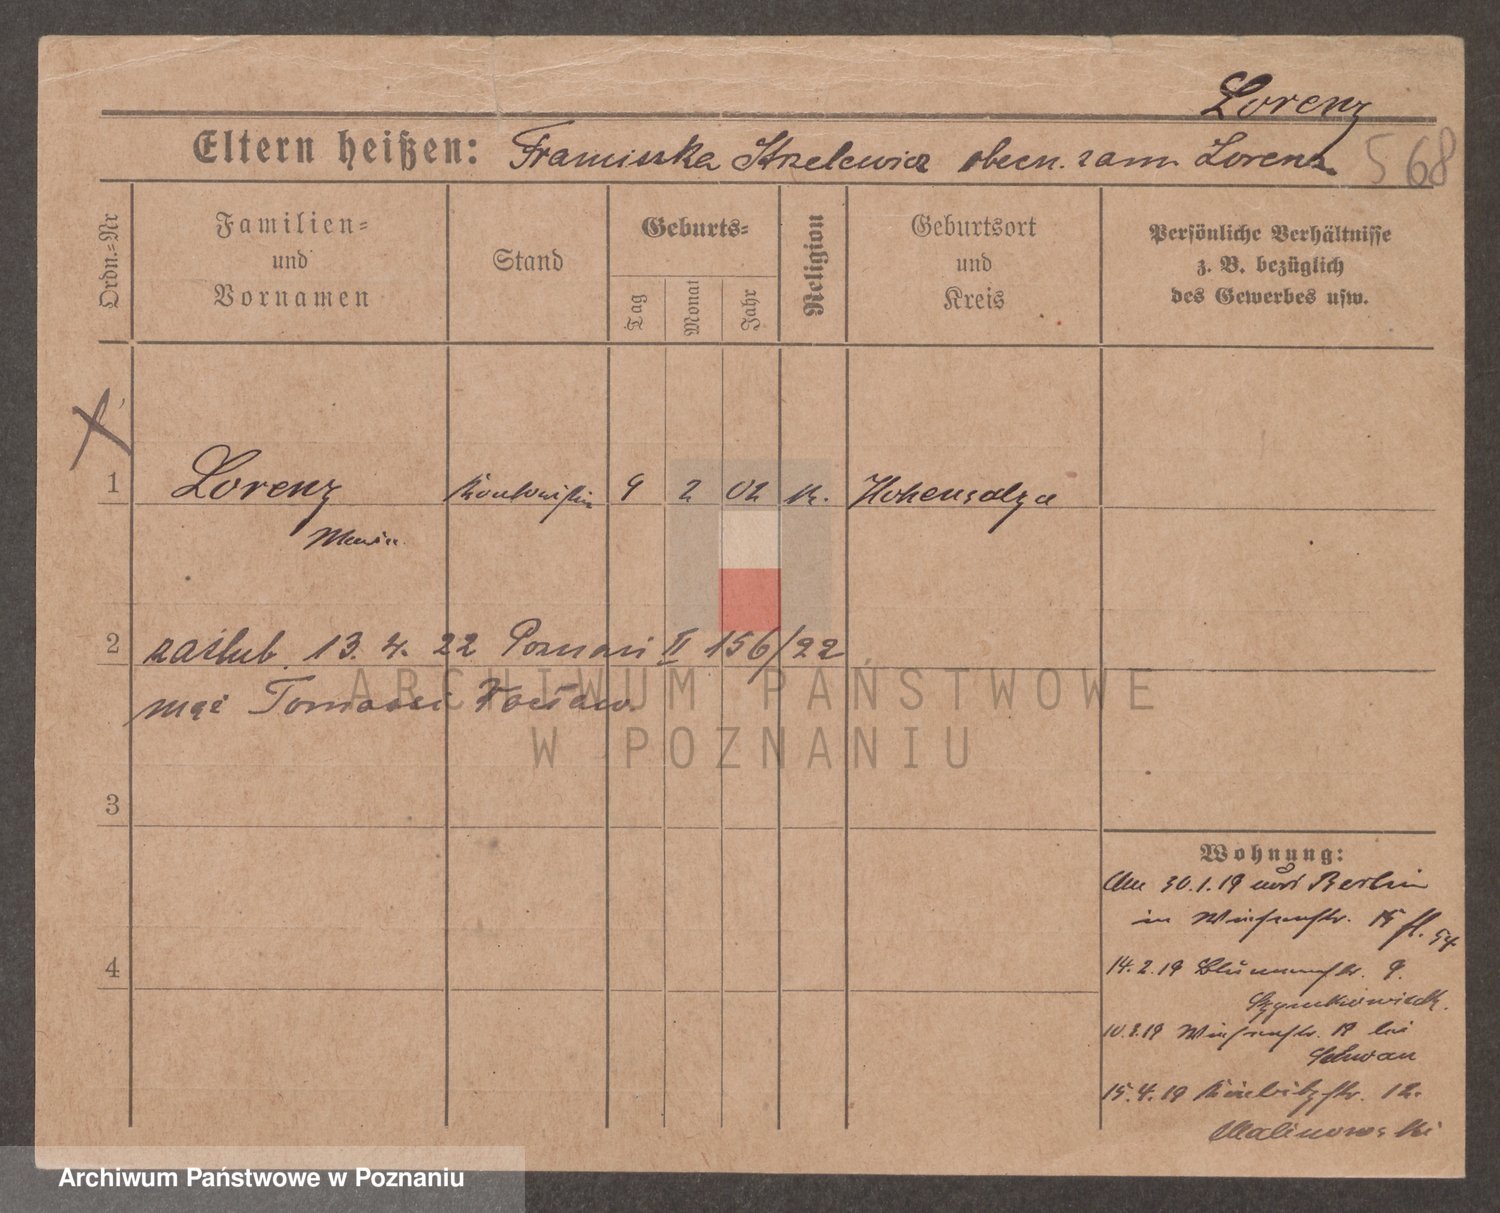 Lorenz
Eltern heißen: Franciszka Strzelewicz obecn. zam. Lorenz
568
Ordn.=Nr
Familien=
und
Vornamen
Stand
Geburts=
Tag
Monat
Jahr
Religion
Geburtsort
und
Kreis
Persönliche Verhältnisse
z. B. bezüglich
des Gewerbes usw.
1
Lorenz Kontoristin 9 2 02 k. Hohensalza
Maria
2
zaślub. 13. 4. 22 Poznań II 156/22
mąż Tomasz
3
4
Wohnung:
Am 30.1.19 von Berlin
in 15
14.2.19 Blumenstr. 9.
10.3.19 bei
Schwan
15.4.19 12.
Malinowski
ARCHIWUM PAŃSTWOWE
W POZNANIU
Archiwum Państwowe w Poznaniu